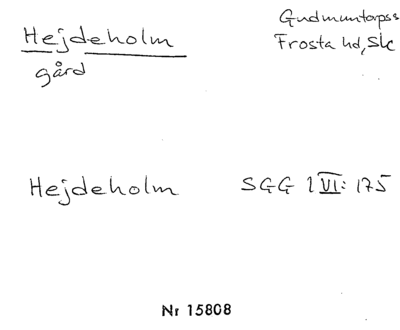 Hejdeholm
gård
Gudmuntorpss
Frosta hd, Sk
Hejdeholm SGG 1 VI: 175
Nr 15808